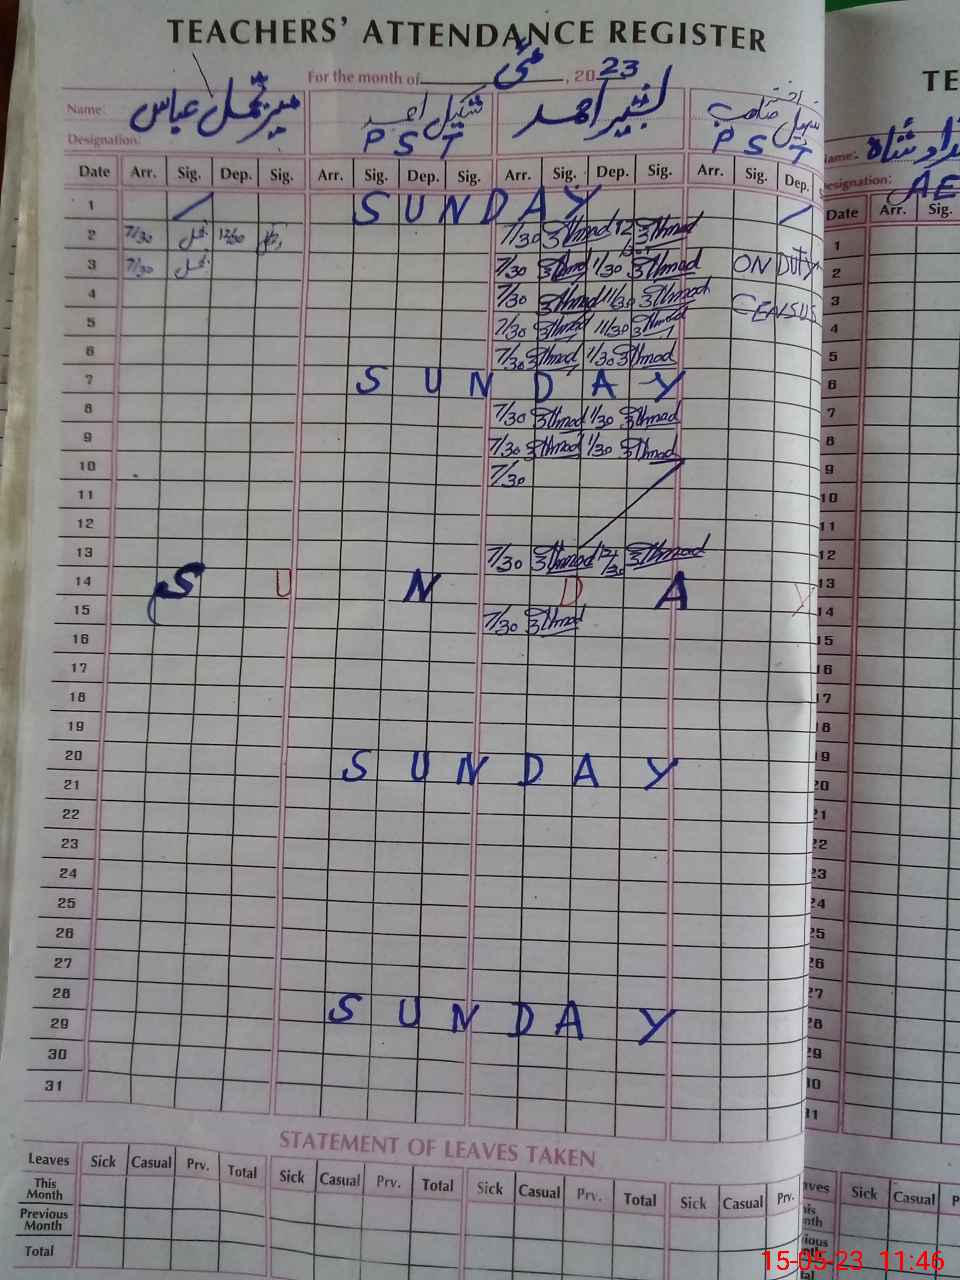 TEACHERS' ATTENDANCE REGISTER
For the month of مئی, 2023
Name: میر تجمل عباس شکیل احمد بشیر احمد سہیل صاحب
Designation: P S T P S T
Date Arr. Sig. Dep. Sig. Arr. Sig. Dep. Sig. Arr. Sig. Dep. Sig. Arr. Sig. Dep.
1 S U N D A Y
2 7/30 12/30 7/30 12
3 7/30 7/30 1/30 ON DUTY
4 7/30 11/30 CENSUS
5 7/30 11/30
6 7/30 1/30
7 S U N D A Y
8 7/30 1/30
9 7/30 1/30
10 7/30
11
12
13 7/30 12/30
14 S U N D A Y
15 7/30
16
17
18
19
20 S U N D A Y
21
22
23
24
25
26
27
28 S U N D A Y
29
30
31
STATEMENT OF LEAVES TAKEN
Leaves Sick Casual Prv. Total Sick Casual Prv. Total Sick Casual Prv. Total Sick Casual Prv.
This Month
Previous Month
Total
TE
Name:
Designation: AE
Date Arr. Sig.
1
2
3
4
5
6
7
8
9
10
11
12
13
14
15
16
17
18
19
20
21
22
23
24
25
26
27
28
29
30
31
Sick Casual
15-05-23 11:46